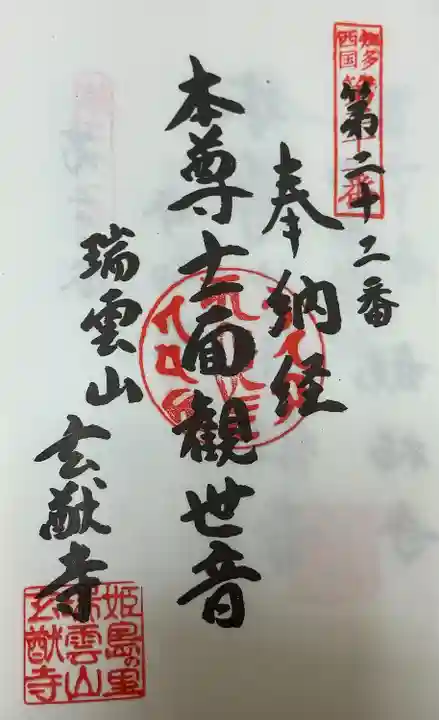 第二十二番
奉納経
本尊十一面観世音
瑞雲山
玄猷寺
知多
西国
番
姫島の里
瑞雲山
玄猷寺